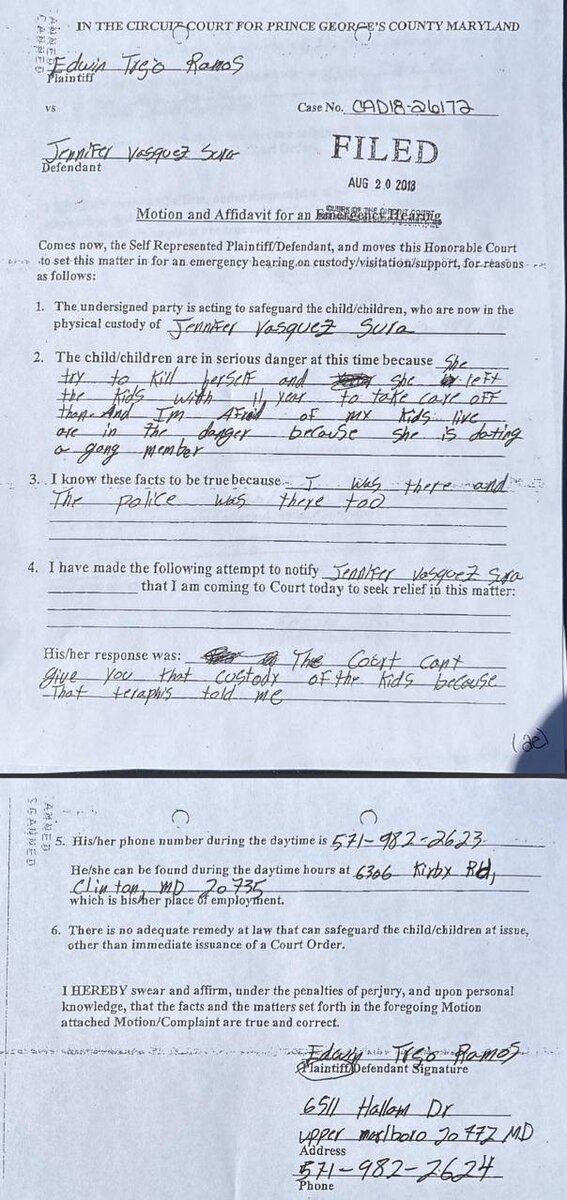 IN THE CIRCUIT COURT FOR PRINCE GEORGE'S COUNTY MARYLAND
Edwin Trejo Ramos
Plaintiff
vs
Case No. CAD18-26172
Jennifer Vasquez Sura
Defendant
FILED
AUG 20 2018
Motion and Affidavit for an Emergency Hearing
Comes now, the Self Represented Plaintiff/Defendant, and moves this Honorable Court
to set this matter in for an emergency hearing on custody/visitation/support, for reasons
as follows:
1. The undersigned party is acting to safeguard the child/children, who are now in the
physical custody of Jennifer Vasquez Sura
2. The child/children are in serious danger at this time because She
try to kill herself and she left
the kids with 11, year to take care off
them. And I'm Afraid of my kids live
are in the danger because she is dating
a gang member
3. I know these facts to be true because I was there and
The police was there too
4. I have made the following attempt to notify Jennifer Vasquez Sura
that I am coming to Court today to seek relief in this matter:
His/her response was: The Court cant
give you that custody of the kids because
That teraphis told me
(2e)
SCANNED
5. His/her phone number during the daytime is 571-982-2623
He/she can be found during the daytime hours at 6306 Kirby Rd,
Clinton, MD 20735
which is his/her place of employment.
6. There is no adequate remedy at law that can safeguard the child/children at issue,
other than immediate issuance of a Court Order.
I HEREBY swear and affirm, under the penalties of perjury, and upon personal
knowledge, that the facts and the matters set forth in the foregoing Motion
attached Motion/Complaint are true and correct.
Edwin Trejo Ramos
Plaintiff/Defendant Signature
6511 Hallam Dr
upper marlboro 20772 MD
Address
571-982-2624
Phone